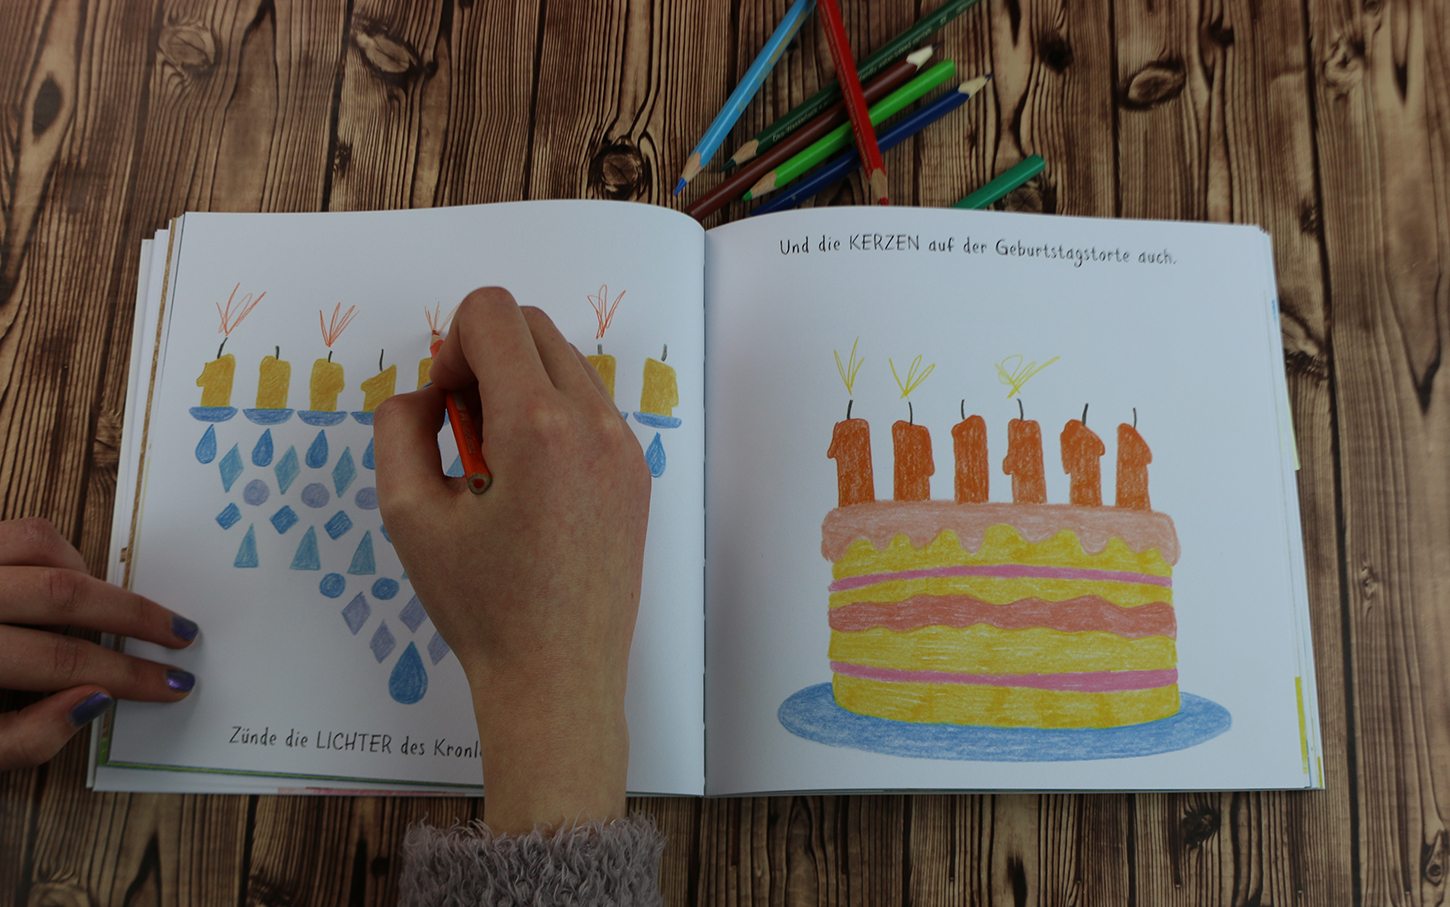 Zünde die LICHTER des
Und die KERZEN auf der Geburtstagstorte auch.